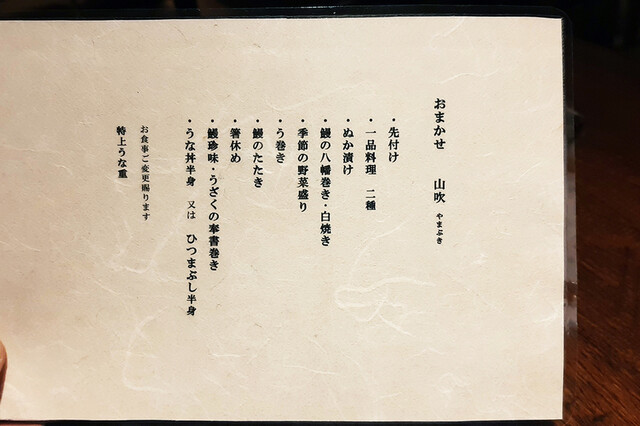 おまかせ 山吹 やまぶき
・先付け
・一品料理 二種
・ぬか漬け
・鰻の八幡巻き・白焼き
・季節の野菜盛り
・う巻き
・鰻のたたき
・箸休め
・鰻珍味・うざくの奉書巻き
・うな丼半身 又は ひつまぶし半身
お食事ご変更賜ります
特上うな重